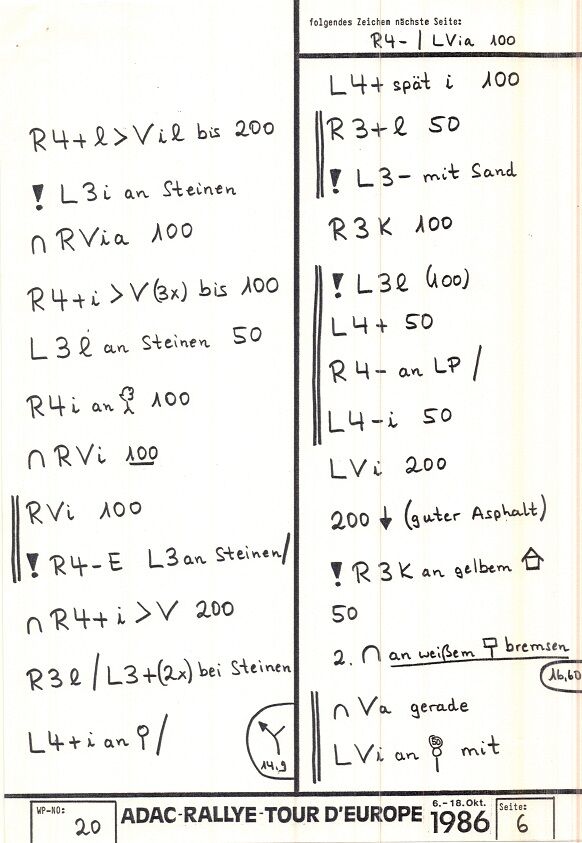 R4+l>Vil bis 200
! L3i an Steinen
∩ RVia 100
R4+i>V(3x) bis 100
L3l an Steinen 50
R4i an 100
∩ RVi 100
RVi 100
! R4-E L3 an Steinen/
∩ R4+i>V 200
R3l/L3+(2x) bei Steinen
L4+i an /
14,9
folgendes Zeichen nächste Seite:
R4-/LVia 100
L4+ spät i 100
R3+l 50
! L3- mit Sand
R3K 100
! L3l (100)
L4+ 50
R4- an LP /
L4-i 50
LVi 200
200 ↓ (guter Asphalt)
! R3K an gelbem
50
2. ∩ an weißem bremsen
16,60
∩ Va gerade
LVi an 50 mit
WP-NO: 20
ADAC-RALLYE-TOUR D'EUROPE 6.-18.Okt. 1986
Seite: 6